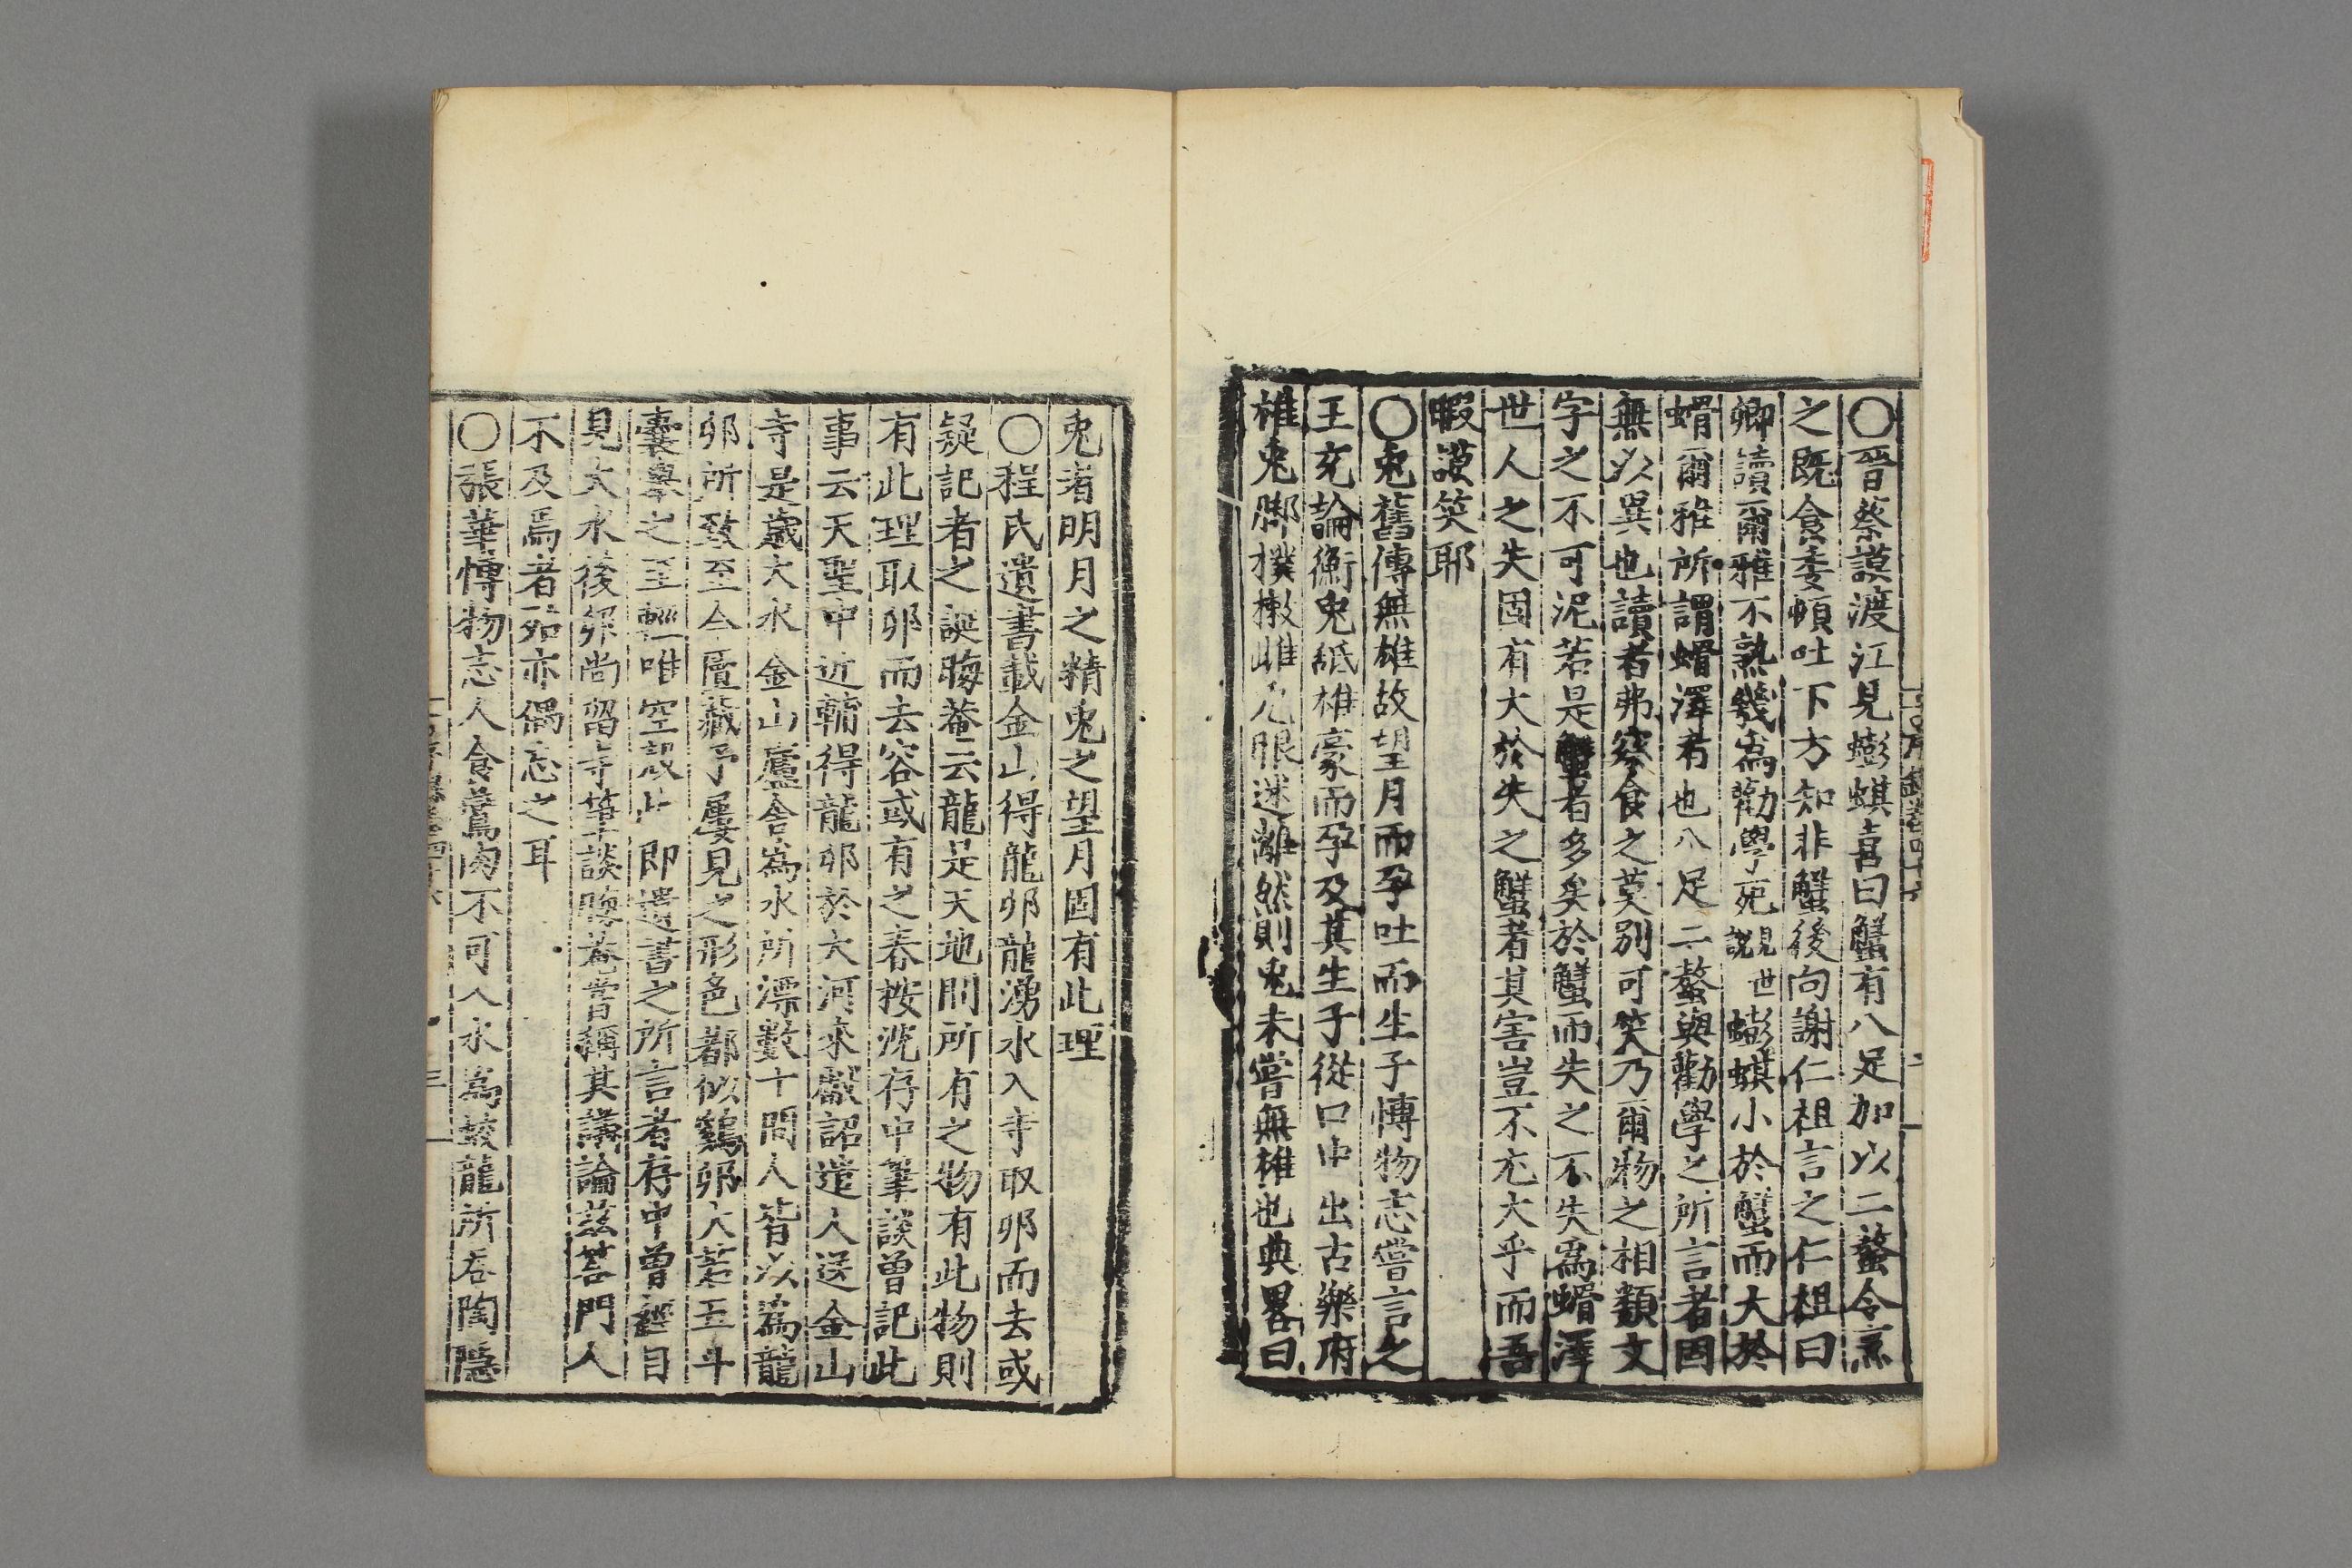 〇晉蔡謨渡江見蟛蜞喜曰蟹有八足加以二螯令烹
之旣食委頓吐下方知非蟹後向謝仁祖言之仁祖曰
卿讀爾雅不熟幾爲勸學死見世說蟛蜞小於蟹而大於
蝟爾雅所謂蝟澤者也八足二螯與勸學之所言者固
無以異也讀者弗察食之莫别可笑乃爾物之相類文
字之不可泥若是蟹者多矣於蟹而失之不失爲蝟澤
世人之失固有大於失之蟹者其害豈不尤大乎而吾
暇謨笑耶
〇兎舊傳無雄故望月而孕吐而生子博物志嘗言之
王充論衡兎䑛雄豪而孕及其生子從口中出古樂府
雄兎脚撲橄雌兎眼迷離然則兎未嘗無雄也典畧曰
兎者明月之精兎之望月固有此理
〇程氏遺書載金山得龍卵龍湧水入寺取卵而去或
疑記者之誤晦菴云龍是天地間所有之物有此物則
有此理取卵而去容或有之春按沈存中筆談曾記此
事云天聖中近輔得龍卵於大河來獻詔遣人送金山
寺是歲大水金山廬舍爲水所漂數十間人皆以爲龍
卵所致至今匱藏予屢見之形色都似鷄卵大若五斗
囊擧之至輕唯空殼此即遺書之所言者存中曾經目
見大水後卵尚留寺筆談晦菴嘗稱其議論兹荅門人
不及焉者殆亦偶忘之耳
〇張華博物志人食鷰肉不可入水爲蛟龍所吞陶隱